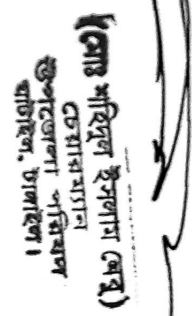 (মোঃ শহিদুল ইসলাম লেবু)
চেয়ারম্যান
উপজেলা পরিষদ
ঘাটাইল, টাঙ্গাইল।